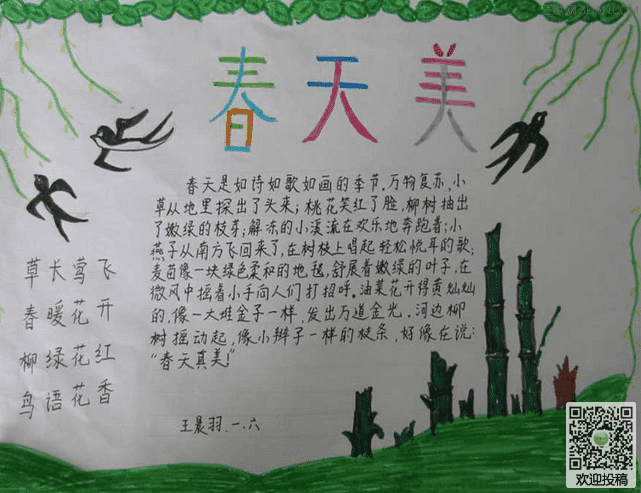 春天美
春天是如诗如歌如画的季节,万物复苏,小
草从地里探出了头来;桃花笑红了脸,柳树抽出
了嫩绿的枝芽;解冻的小溪流在欢乐地奔跑着;小
燕子从南方飞回来了,在树枝上唱起轻松悦耳的歌;
麦苗像一块绿色柔和的地毯,舒展着嫩绿的叶子,在
微风中摇着小手向人们打招呼。油菜花开得黄灿灿
的,像一大堆金子一样,发出万道金光。河边柳
树摇动起,像小辫子一样的枝条,好像在说:
“春天真美!”
王晨羽.一.六
草长莺飞
春暖花开
柳绿花红
鸟语花香
欢迎投稿